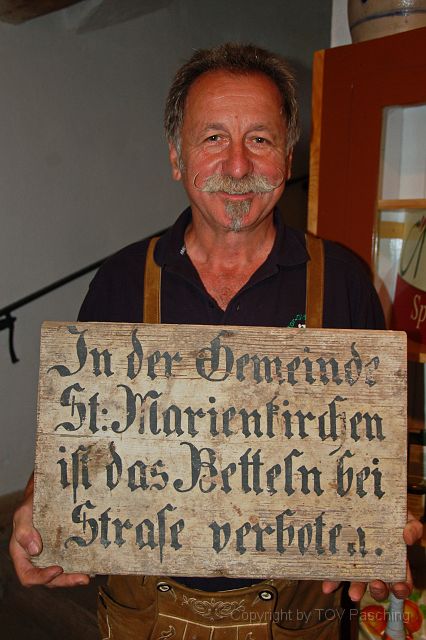 In der Gemeinde
St: Marienkirchen
ist das Betteln bei
Strafe verboten.
Sp
Copyright by TOV Pasching